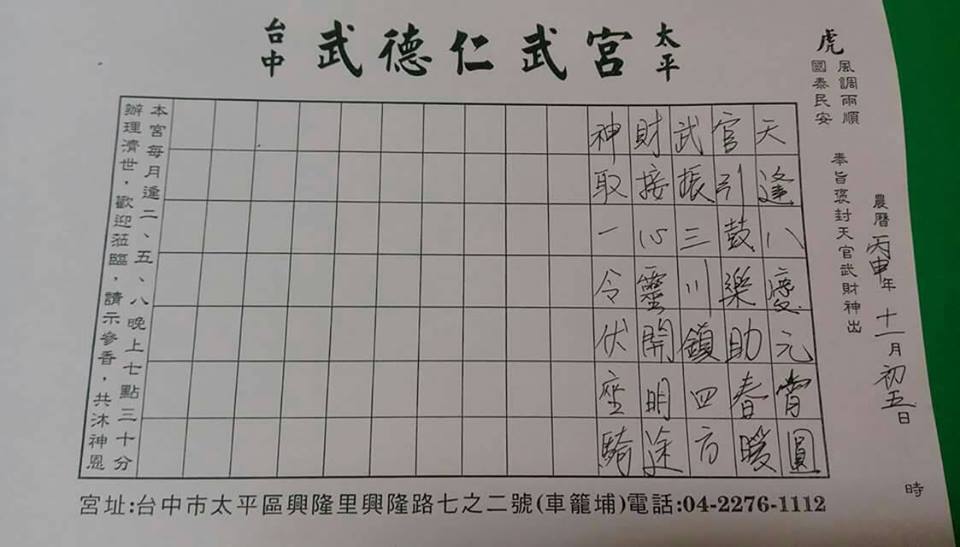 台中 武德仁武宮 太平
農曆丙申年十一月初五日 時
虎
風調雨順
國泰民安
奉旨褒封天官武財神出
天逢八慶元宵圓
官引鼓樂助春暖
武振三川鎮四方
財接心靈開明途
神取一令伏座騎
本宮每月逢二、五、八晚上七點三十分
辦理濟世，歡迎蒞臨，請示參香，共沐神恩
宮址:台中市太平區興隆里興隆路七之二號(車籠埔)電話:04-2276-1112